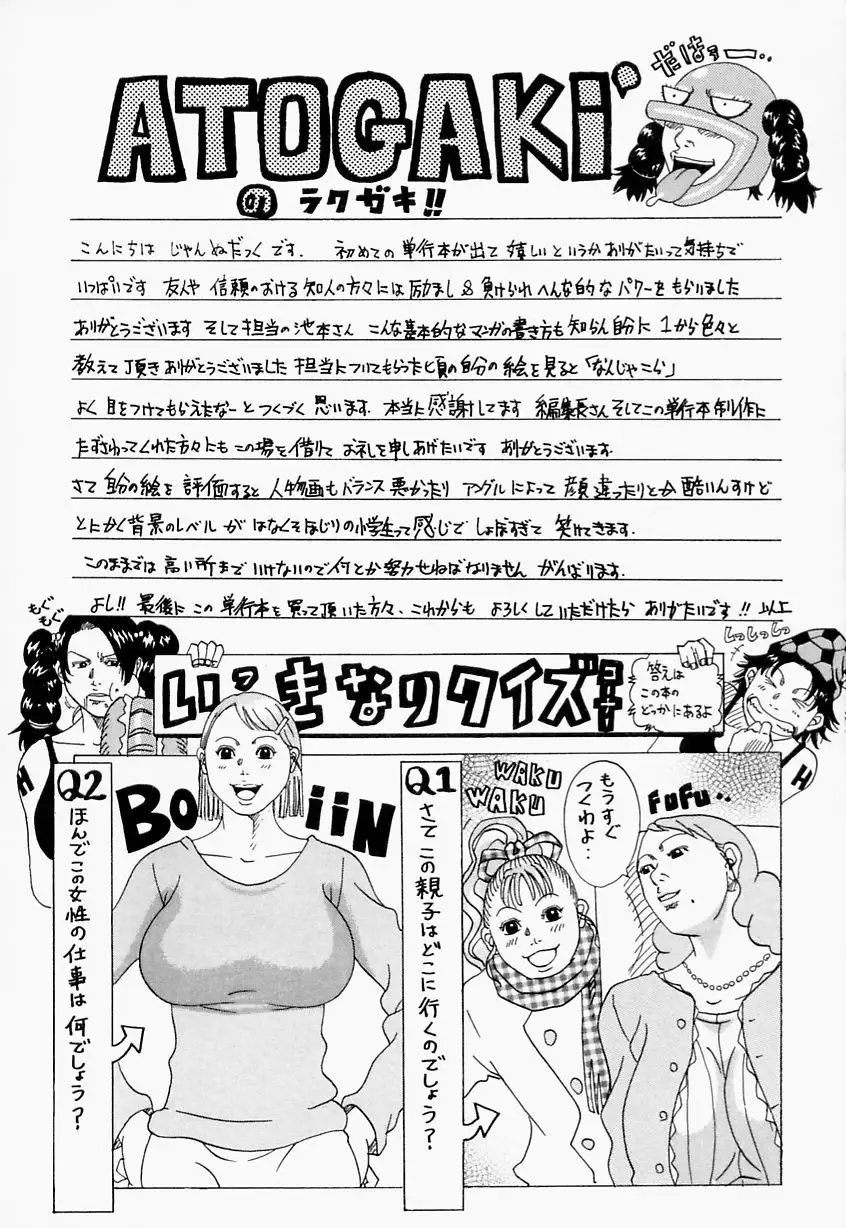 だはァー‥
ATOGAKi
の ラクガキ!!
こんにちは じゃんぬだっく です. 初めての 単行本が出て 嬉しいというか ありがたいって気持ちで
いっぱいです 友人や 信頼のおける 知人の方々には 励まし & 負けられへんな的な パワーをもらいました
ありがとうございます そして 担当の池本さん こんな基本的なマンガの書き方も 知らん自分に 1から色々と
教えて頂き ありがとうございました 担当についてもらった頃の自分の絵を見ると 「なんじゃこら」
よく目をつけてもらえたなーと つくづく 思います. 本当に感謝してます 編集長さん そしてこの単行本制作に
たずさわってくれた方々にも この場を借りて お礼を申しあげたいです ありがとうございます.
さて 自分の絵を 評価すると 人物画もバランス悪かったり アングルによって 顔違ったりとか 酷いんすけど
とにかく背景のレベルが はなくそほじりの小学生って感じで しょぼすぎて 笑けてきます.
このままでは 高い所まで いけないので 何とか努力せねばなりません がんばります.
よし!! 最後に この 単行本を 買って頂いた方々、これからも よろしくしていただけたら ありがたいです!! 以上
もぐもぐ
しっしっしっ
いっきなりクイズコーナー
答えは
この本の
どっかにあるよ
H
H
Q1
さて この親子はどこに行くのでしょう?
WAKU
WAKU
もうすぐ
つくわよ‥
FuFu‥
Q2
ほんでこの女性の仕事は何でしょう?
BO
iiN